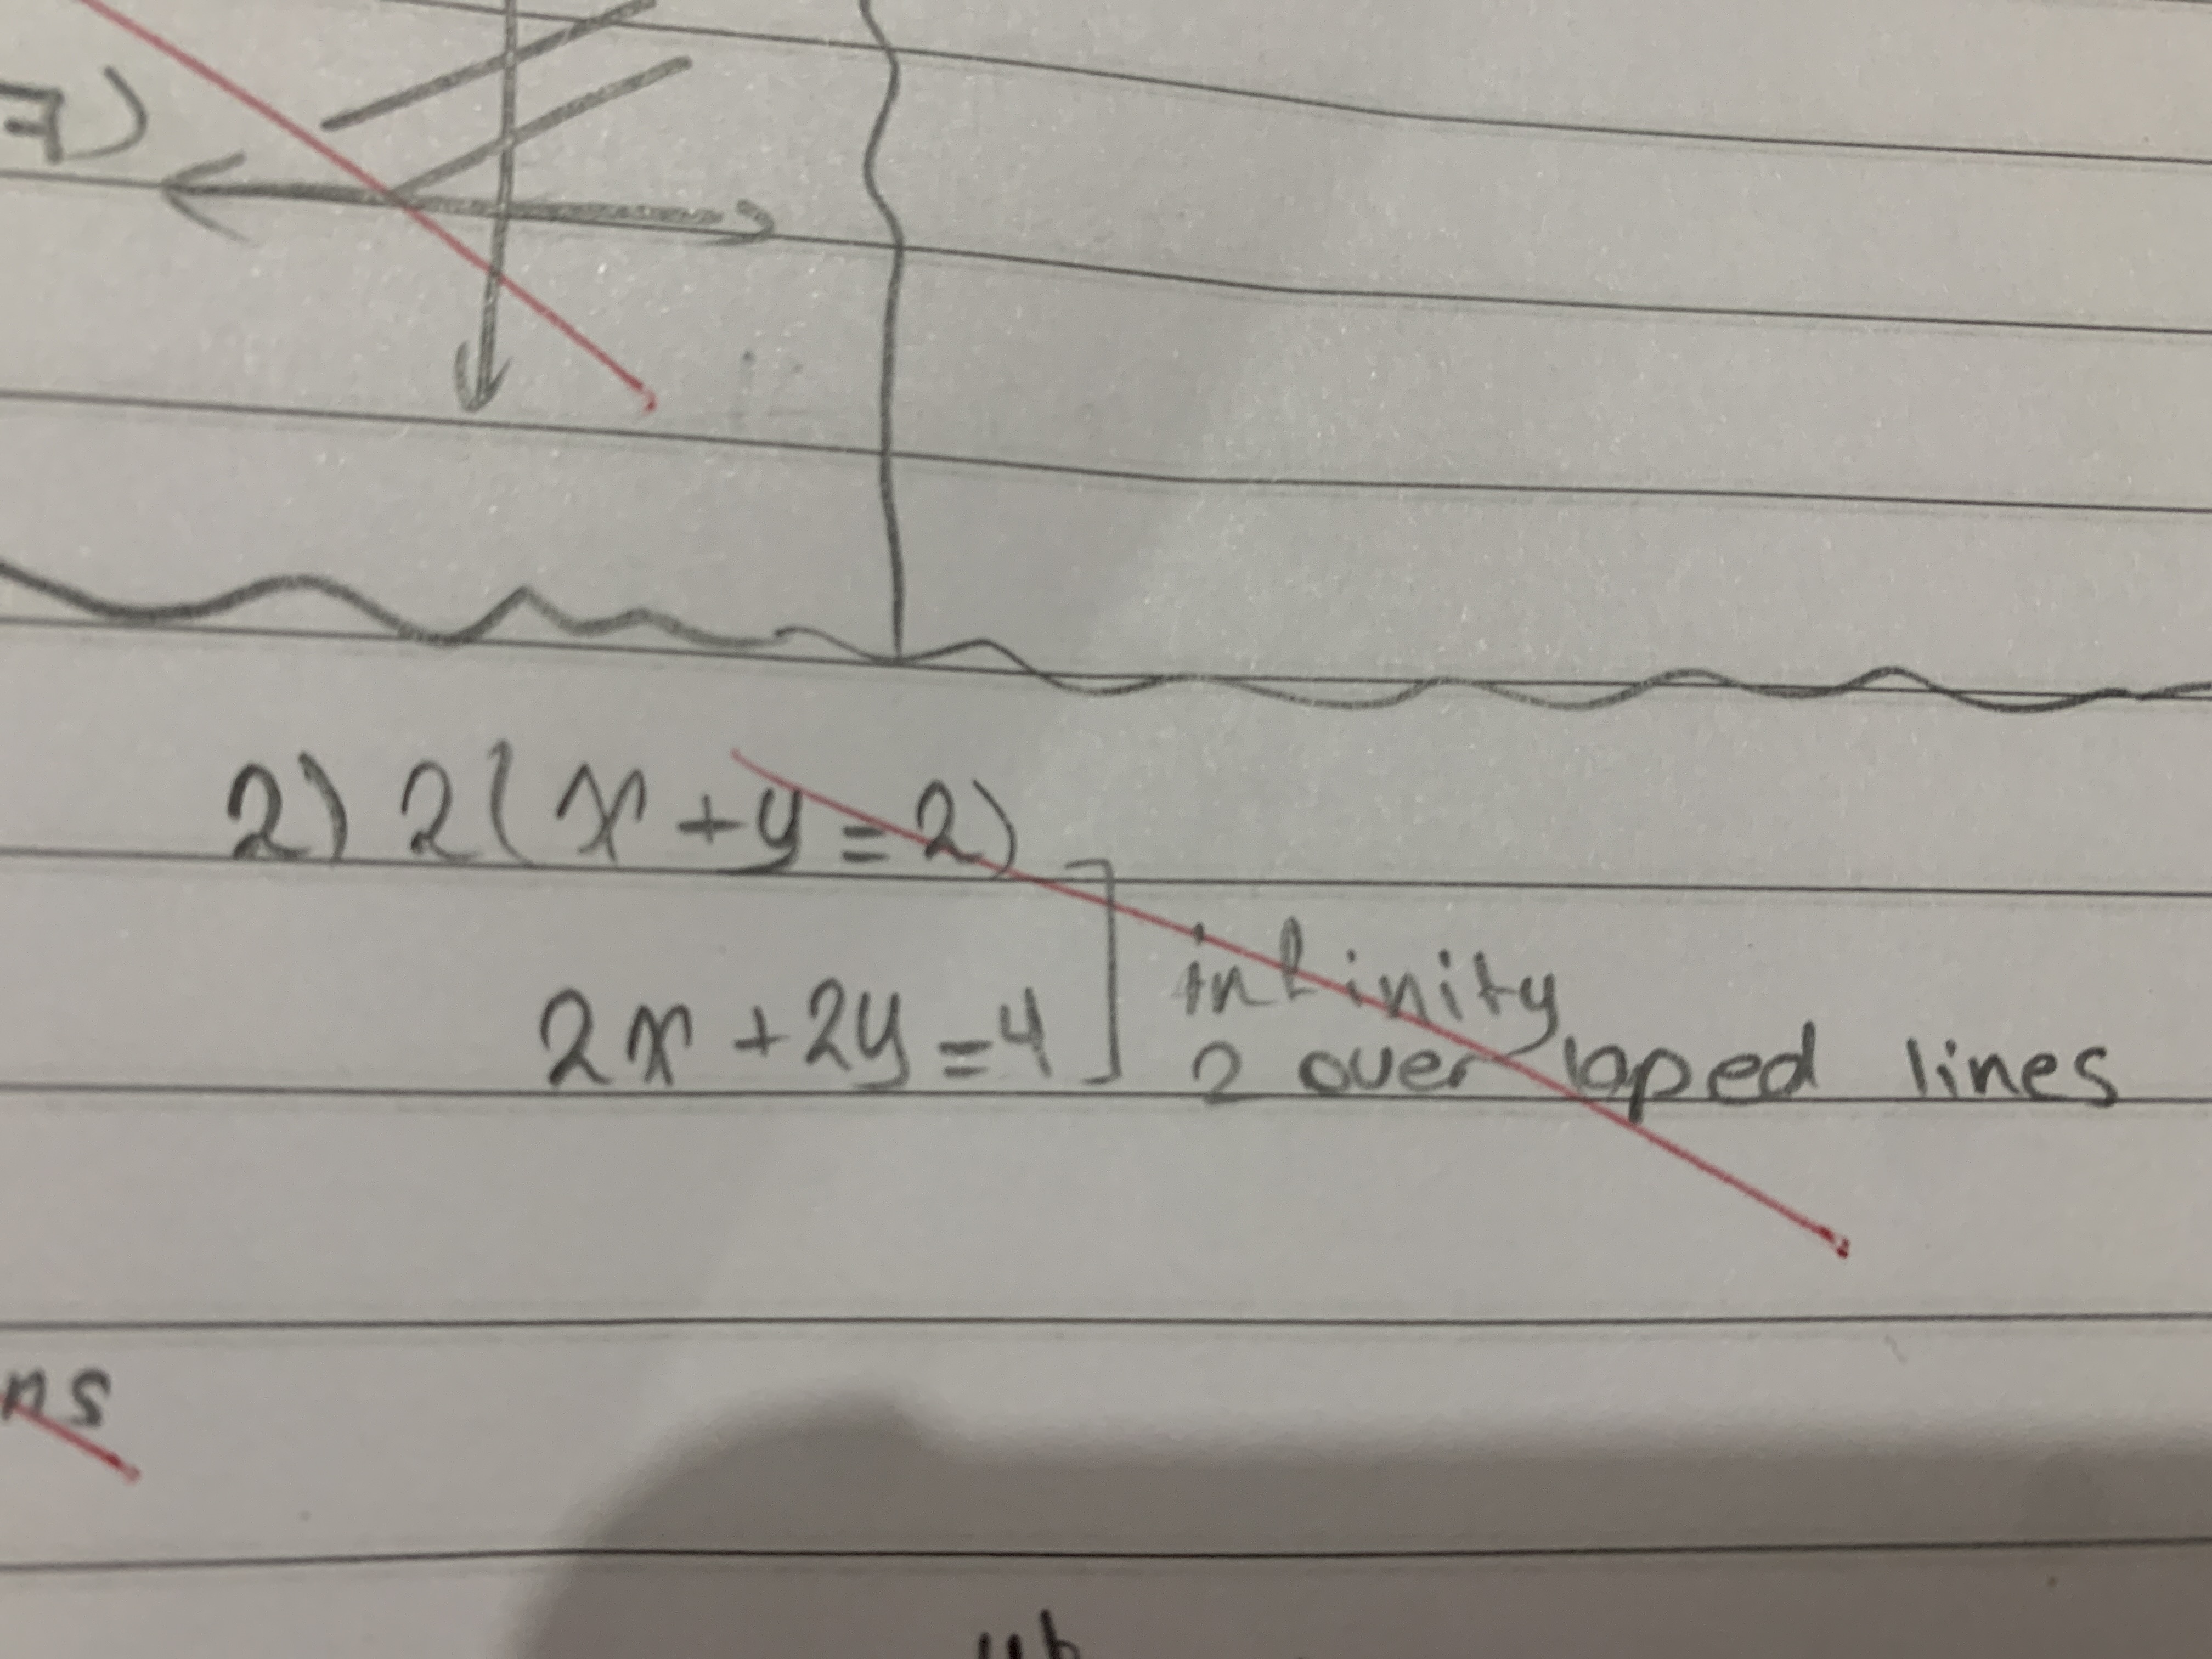 2) 2(x+y=2)
2x+2y=4] infinity
2 over laped lines
ns